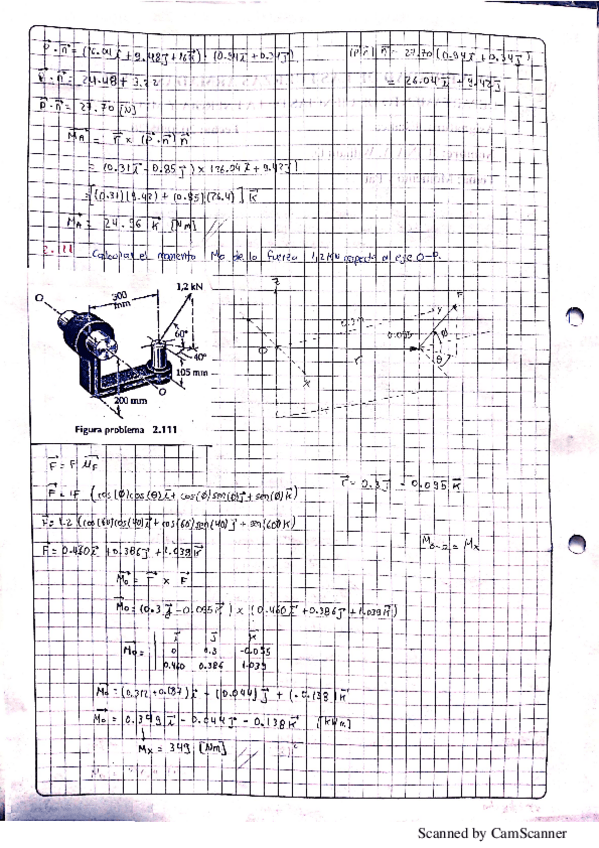 P⃗ · n⃗ = (26.01i⃗ + 9.48j⃗ + 16k⃗) · (0.94i⃗ + 0.34j⃗)
(P⃗·n⃗) n⃗ = 27.70 (0.94i⃗ + 0.34j⃗)
P⃗ · n⃗ = 24.48 + 3.22
= 26.04i⃗ + 9.42j⃗
P⃗ · n⃗ = 27.70 [N]
M⃗A = r⃗ x (P⃗·n⃗) n⃗
= (0.31i⃗ - 0.85j⃗) x (26.04i⃗ + 9.42j⃗)
= [(0.31)(9.42) + (0.85)(26.4)] k⃗
M⃗A = 24.96 k⃗ [Nm]
2.111 Calcular el momento Mo de la fuerza 1,2 KN respecto al eje O-O.
1,2 kN
O
300 mm
60°
40°
105 mm
O
200 mm
Figura problema 2.111
z
F
y
0.3
0.095
O
r
Ø
θ
x
F⃗ = F μ⃗F
F⃗ = F (cos(Ø)cos(θ)i⃗ + cos(Ø)sen(θ)j⃗ + sen(Ø)k⃗)
r⃗ = 0.3j⃗ - 0.095k⃗
F⃗ = 1.2 (cos(60)cos(40)i⃗ + cos(60)sen(40)j⃗ + sen(60)k⃗)
F⃗ = 0.460i⃗ + 0.386j⃗ + 1.039k⃗
= Mx
M⃗o = r⃗ x F⃗
M⃗o = (0.3j⃗ - 0.095k⃗) x (0.460i⃗ + 0.386j⃗ + 1.039k⃗)
i⃗ j⃗ k⃗
M⃗o = 0 0.3 -0.095
0.460 0.386 1.039
M⃗o = (0.312 + 0.037)i⃗ - (0.044)j⃗ + (-0.138)k⃗
M⃗o = 0.349i⃗ - 0.044j⃗ - 0.138k⃗ [kNm]
Mx = 349 [Nm]
Scanned by CamScanner